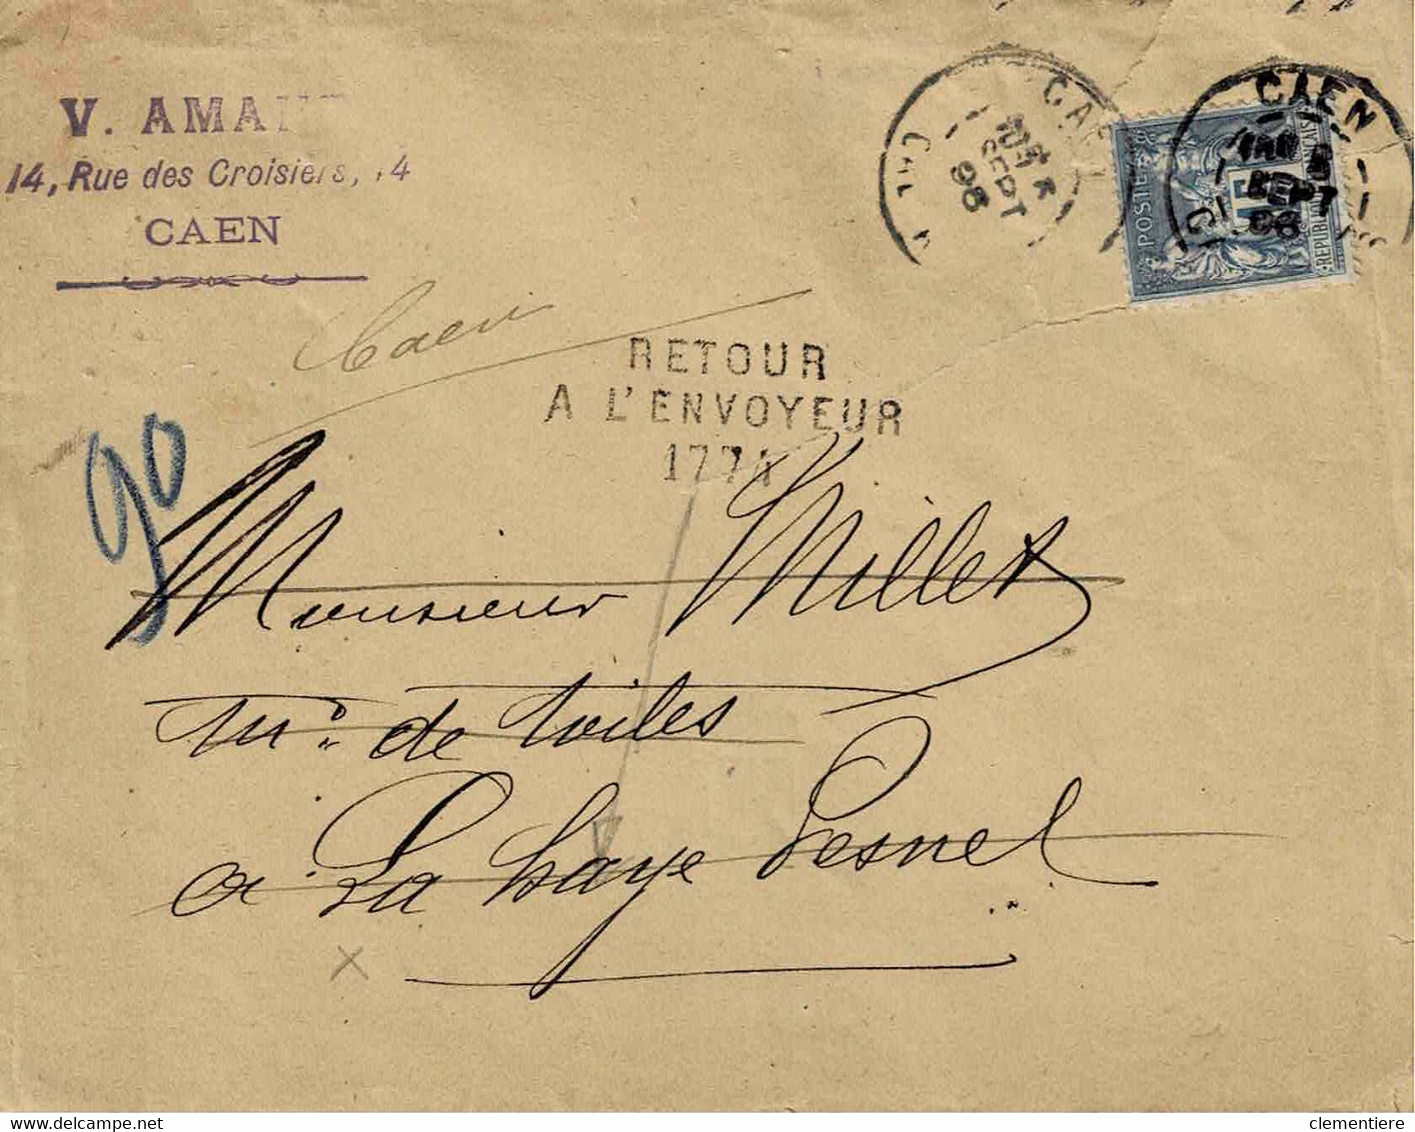 V. AMA
14, Rue des Croisiers, 14
CAEN
CAEN
SEPT
98
CAEN
SEPT
98
POSTES
15
REPUBLIQUE FRANÇAISE
Caen
RETOUR
A L'ENVOYEUR
1774
90
Monsieur Millet
md. de toiles
a La haye Pesnel
x
delcampe.net
clementiere